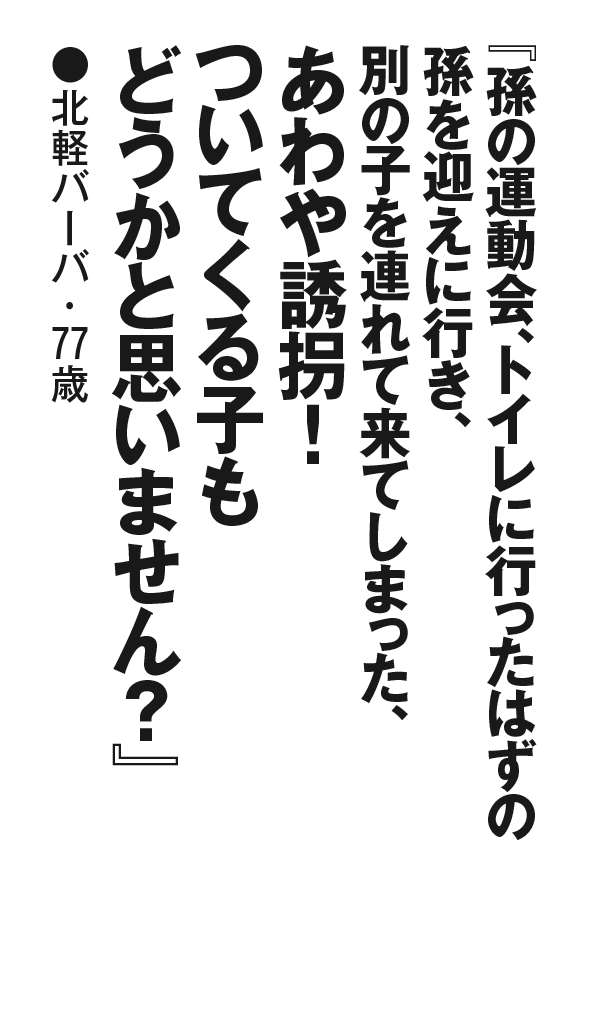 『孫の運動会、トイレに行ったはずの
孫を迎えに行き、
別の子を連れて来てしまった、
あわや誘拐！
ついてくる子も
どうかと思いません？』
●北軽バーバ・77歳